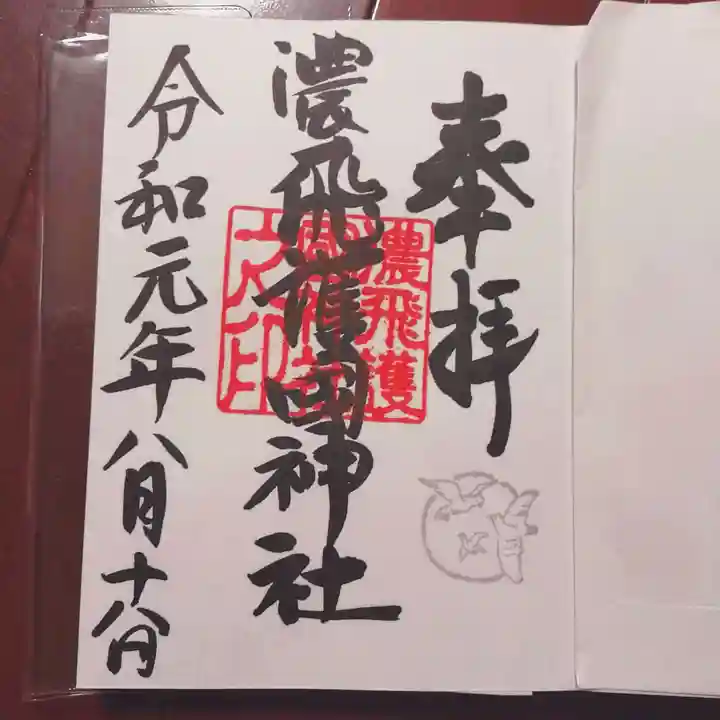 奉拝
濃飛護國神社
令和元年八月十八日
濃飛護
國神社
之印